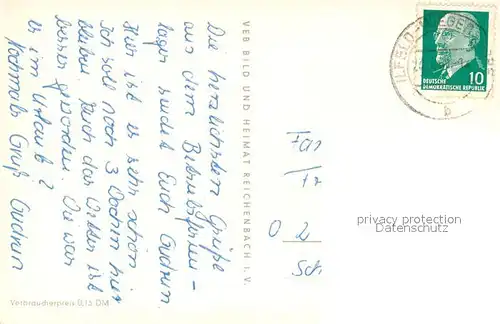 Die herzlichsten Grüße
aus dem Betriebsferien-
lager sendet Euch Gudrun.
Hier ist es sehr schön
Ich soll noch 3 Wochen hier
bleiben. Auch das Wetter ist
besser geworden. Wie war
es im Urlaub?
Nochmals Gruß Gudrun
VEB BILD UND HEIMAT REICHENBACH I. V.
Verbraucherpreis 0,15 DM
10
DEUTSCHE
DEMOKRATISCHE REPUBLIK
ILFELD
b
privacy protection
Datenschutz
O 2
Sch